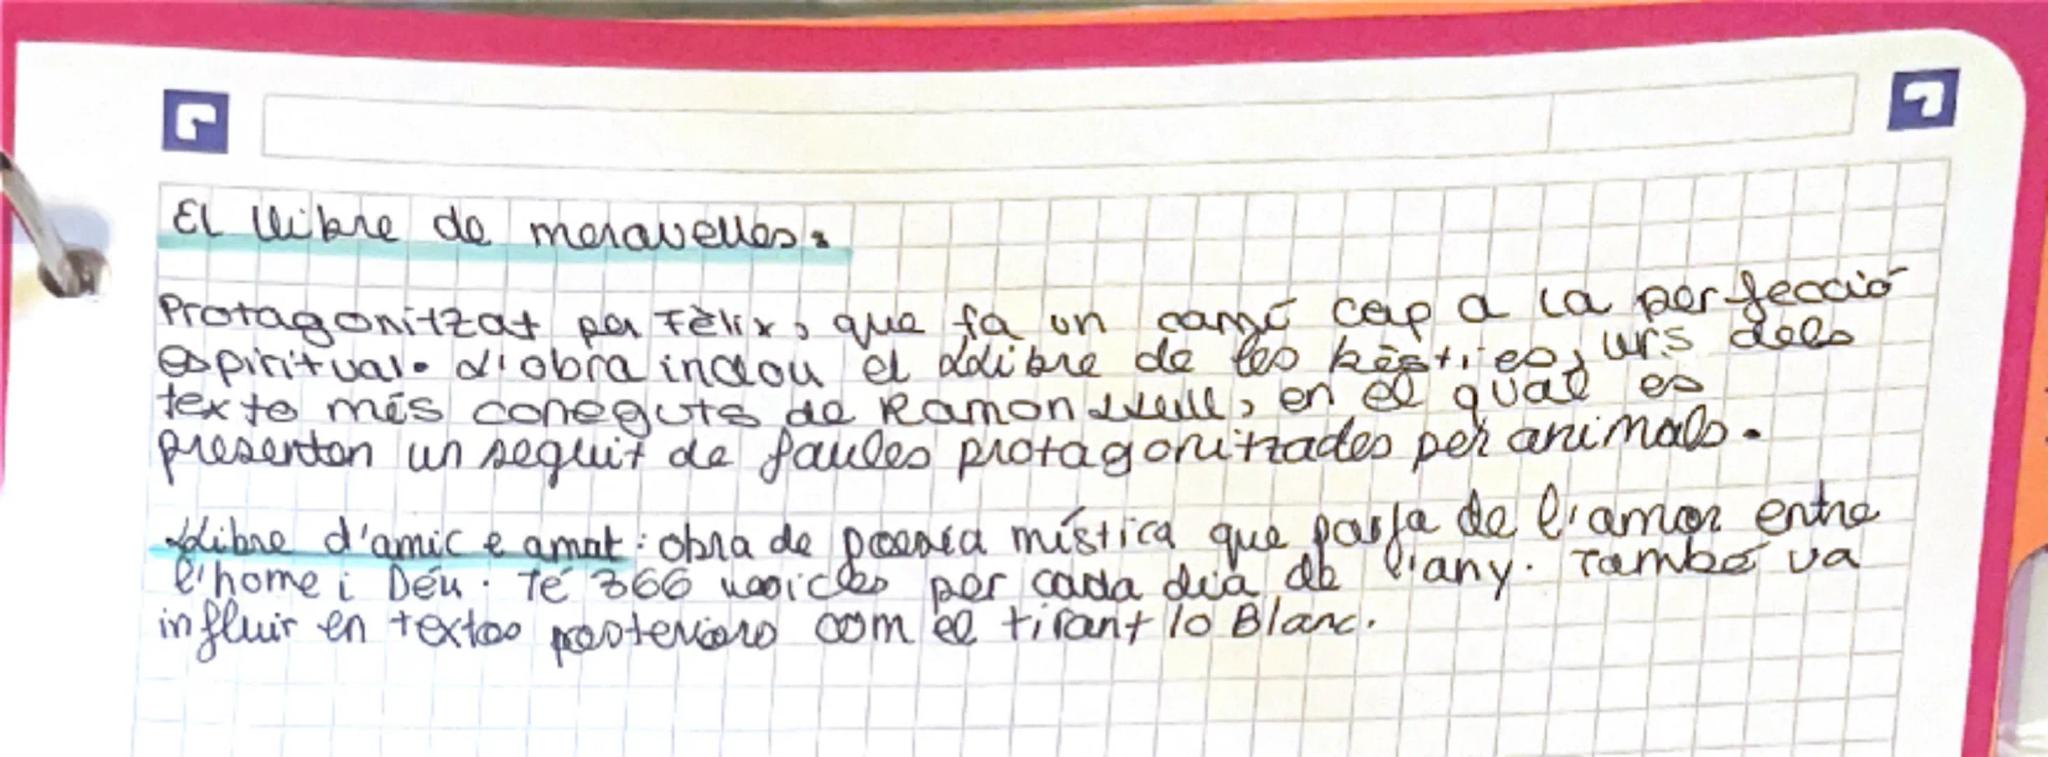 El llibre de meravelles:
Protagonitzat per Fèlix, que fa un camí cap a la perfecció
espiritual. L'obra inclou el Llibre de les bèsties, urs dels
texts més coneguts de Ramon Llull, en el qual es
presenten un seguit de faules protagonitzades per animals.
Llibre d'amic e amat: obra de poesia mística que parla de l'amor entre
l'home i Déu. Té 366 per cada dia de l'any. També va
influir en textos posteriors com el tirant lo Blanc.